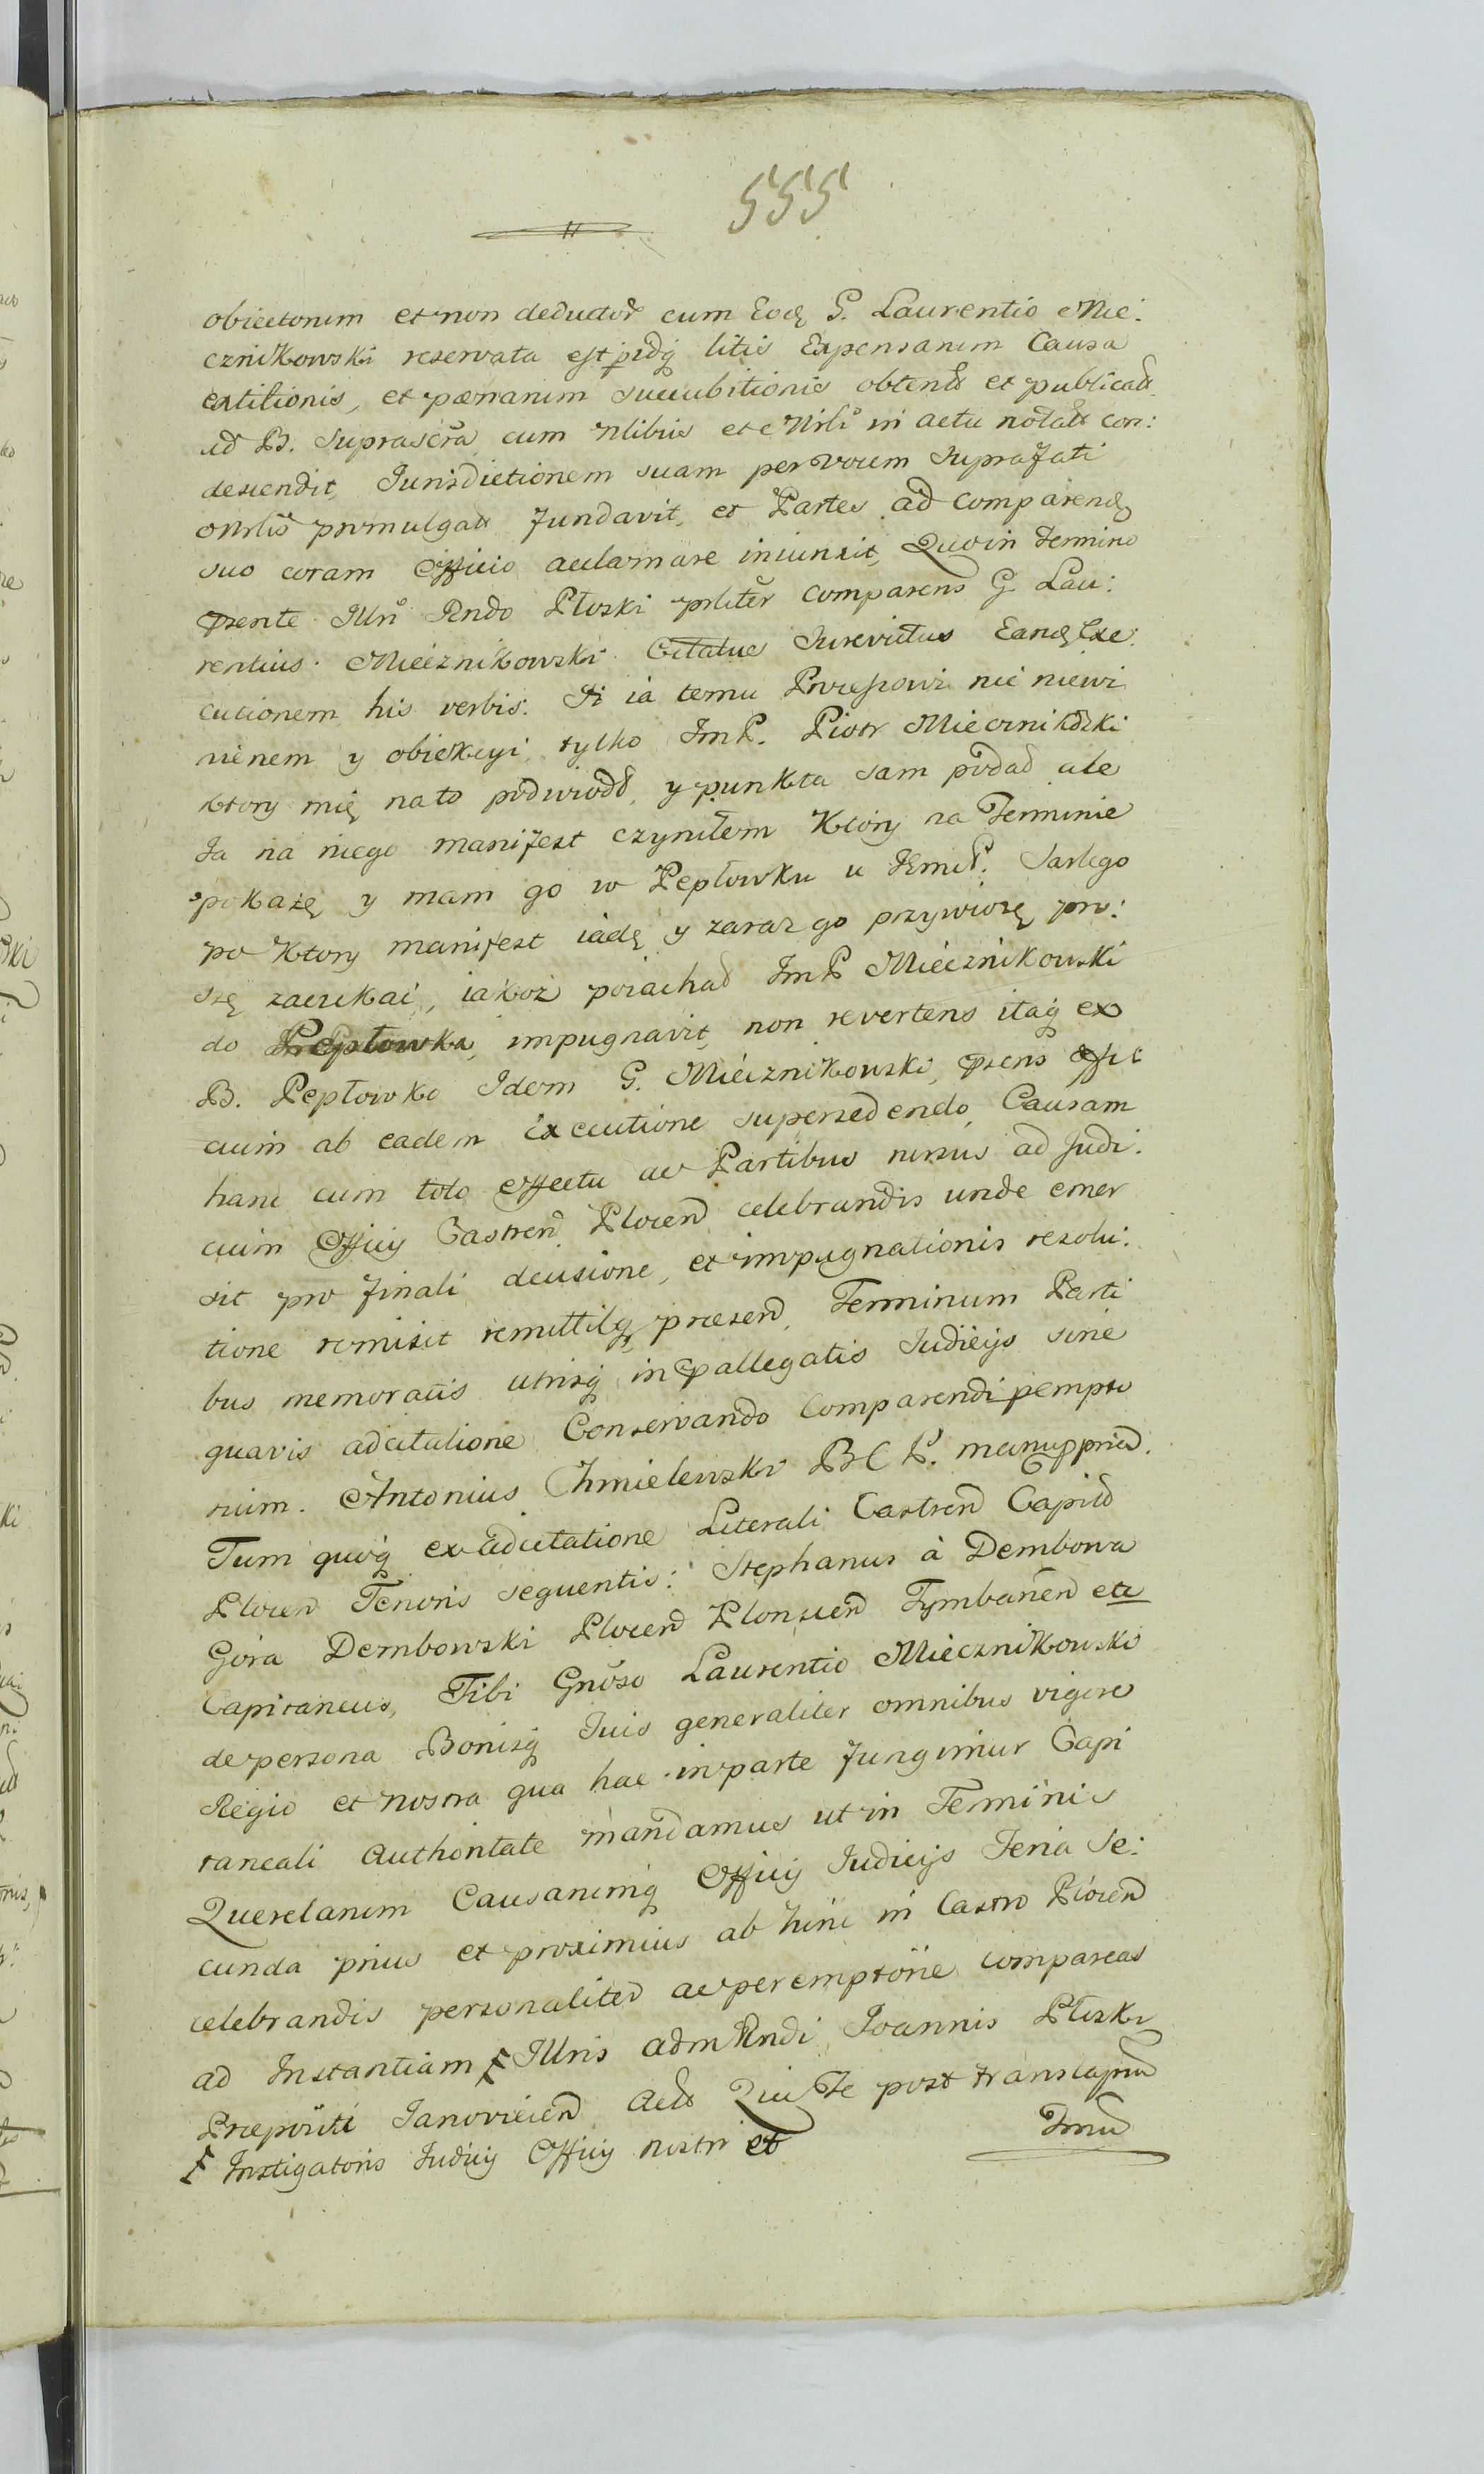 555
obiectorum et non deductor cum Eod G. Laurentio Mie:
cznikowski reservata est pcdq litis Expensarum Causa
extitionis, et pœnarum succubitionis obtent et publicat
ad B. Suprascra cum Nlibus et Mrli in actu notat con:
descendit, Jurisdictionem suam per vocem suprafati
Mrlis promulgat fundavit, et Partes ad comparend
suo coram Officio acclamare iniunxit, Quo in Termino
prsente Illri Rndo Płoski prliter comparens G. Lau:
rentius Miecznikowski Citatus Jurevictus Eand Exe:
cutionem his verbis. Iż ia temu Przepowi nic niewi
nienem y obiekcyi, tylko ImP. Piotr Miecznikoski
ktory mię nato podwiodł, y punkta sam podał ale
Ja na niego manifest czyniłem Ktory na Terminie
pokażę, y mam go w Pepłowku u ImP. Sarlego
po Ktory manifest iadę y zaraz go przywiozę, pro:
szę zaczekać, iakoż poiachał ImP Miecznikowski
do Pepłowka, impugnavit, non revertens itaq ex
B. Pepłowko Idem G. Miecznikowski, prsens Offi
cium ab eadem Executione supersedendo, Causam
hanc cum toto effectu ac Partibus rursus ad Judi:
cium Officij Castren Plocen celebrandis unde emer
sit pro finali decisione, et impugnationis resolu:
tione remisit remittitq, præsen, Terminum Parti
bus memoratis utrisq in prallegatis Judicijs sine
quavis adcitatione Conservando Comparendi pempto
rium. Antonius Chmielewski BCP. manu ppria.
Tum quoq ex adcitatione Literali Castren Capit
Plocen Tenoris sequentis: Stephanus à Dembowa
Góra Dembowski Plocen Plonscen Tymbarien etc
Capitaneus, Tibi Gnoso Laurentio Miecznikowski
de persona Bonisq Tuis generaliter omnibus vigore
Regio et nostra qua hac in parte fungimur Capi
taneali Authoritate mandamus ut in Terminis
Querelarum Causarumq Officij Judicijs Feria Se:
cunda prius et proximius ab hinc in Castro Plocen
celebrandis personaliter ac peremptorie compareas
ad Instantiam Ɨ Illris adm Rndi Joannis Płoski
Præpositi Janovicien Act Qui Te post transcapm
Ɨ Instigatoris Judicij Officij nostri et
Tmu